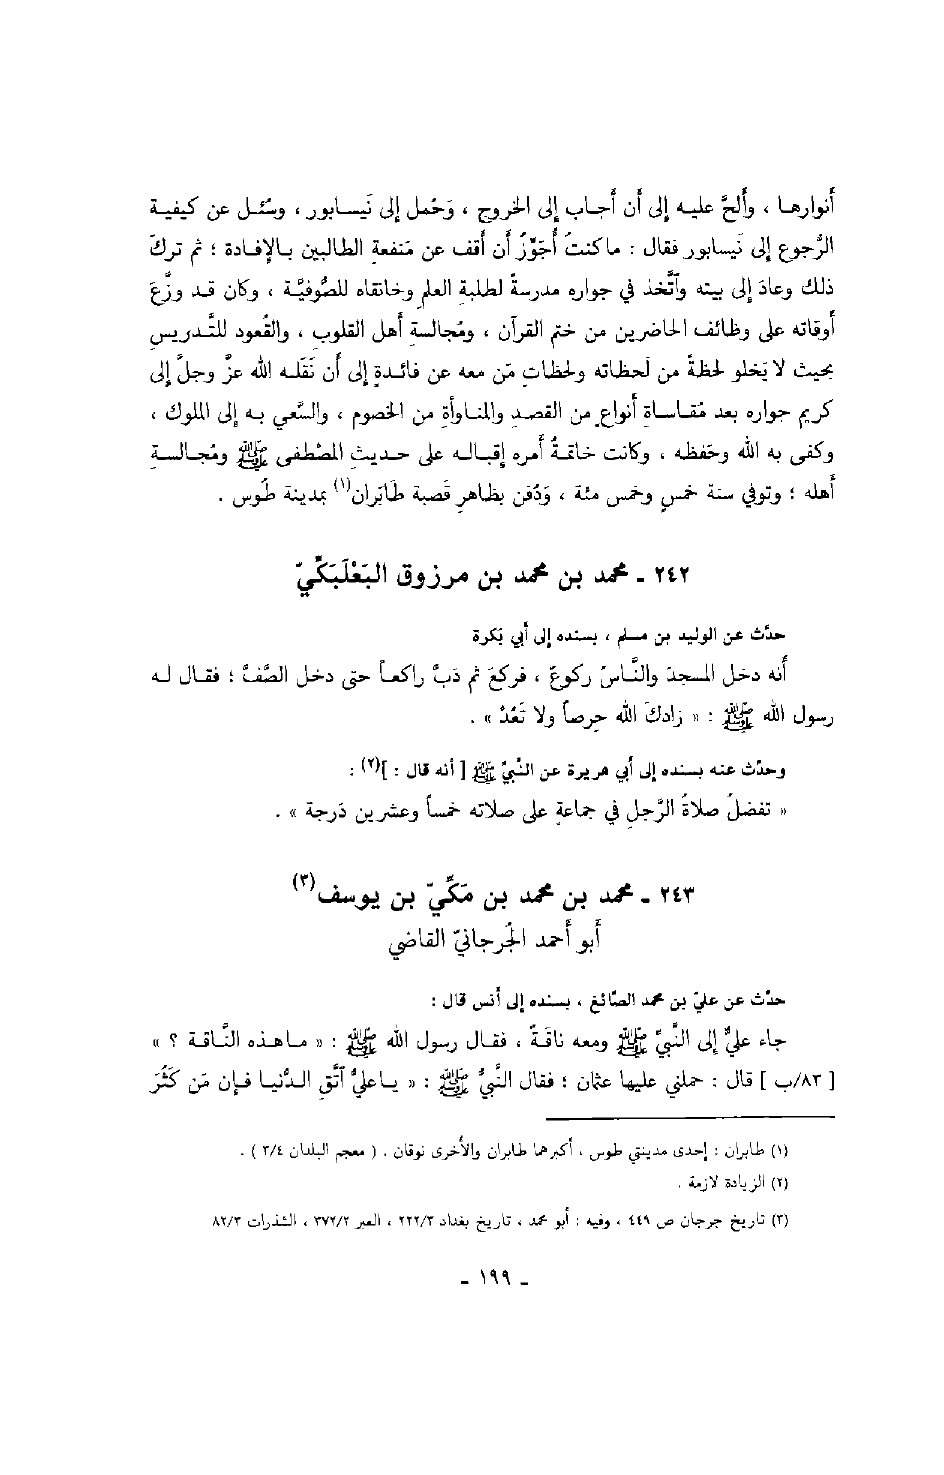 أنوارها ، وألحَّ عليه إلى أن أجاب إلى الخروج ، وَحُمل إلى نَيسابور ، وسُئل عن كيفية
الرُّجوع إلى نَيسابور فقال : ما كنتُ أُجَوِّزُ أن أقف عن مَنفعةِ الطالبين بالإفادة ؛ ثم تركَ
ذلك وعادَ إلى بيته وٱتَّخذ في جواره مدرسةً لطلبةِ العلمِ وخانقاه للصُّوفيَّة ، وكان قد وزَّعَ
أوقاته على وظائف الحاضرين من ختم القرآن ، ومُجالسةِ أهل القلوب ، والقُعود للتَّدريسِ
بحيث لا يَخلو لحظةً من لَحظاته ولحظاتِ مَن معه عن فائدةٍ إلى أن نَقَله الله عزَّ وجلَّ إلى
كريم جواره بعد مُقاساةِ أنواعٍ من القصدِ والمناوأةِ من الخصوم ، والسَّعي به إلى الملوك ،
وكفى به الله وحَفظه ، وكانت خاتمةُ أمره إقباله على حديثِ المصْطفى ﷺ ومُجالسةِ
أهله ؛ وتوفي سنة خمسٍ وخمس مئة ، وَدُفن بظاهرِ قَصبة طابَران(١) بمدينة طُوس .
٢٤٢ ـ محمد بن محمد بن مرزوق البَعْلَبَكِّيّ
حدَّث عن الوليد بن مسلم ، بسنده إلى أبي بَكرة
أنه دخل المسجدَ والنَّاسُ ركوعٌ ، فركعَ ثم دَبَّ راكعاً حتى دخل الصَّفَّ ؛ فقال له
رسول الله ﷺ : « زادكَ الله حِرصاً ولا تَعُدْ » .
وحدَّث عنه بسنده إلى أبي هريرة عن النَّبيِّ ﷺ [ أنه قال : ](٢) :
« تفضلُ صلاةُ الرَّجلِ في جماعةٍ على صلاته خمساً وعشرين دَرجة » .
٢٤٣ ـ محمد بن محمد بن مَكِّيّ بن يوسف(٣)
أبو أحمد الجُرجانيّ القاضي
حدَّث عن عليّ بن محمد الصَّائغ ، بسنده إلى أنس قال :
جاء عليٌّ إلى النَّبيِّ ﷺ ومعه ناقَةٌ ، فقال رسول الله ﷺ : « ما هذه النَّاقة ؟ »
[ ٨٣/ب ] قال : حملني عليها عثمان ؛ فقال النَّبيُّ ﷺ : « يا عليُّ ٱتَّقِ الدُّنيا فإن مَن كَثُرَ
(١) طابران : إحدى مدينتي طوس ، أكبرهما طابران والأخرى نوقان . ( معجم البلدان ٣/٤ ) .
(٢) الزيادة لازمة .
(٣) تاريخ جرجان ص ٤٤٩ ، وفيه : أبو محمد ، تاريخ بغداد ٢٢٢/٣ ، العبر ٣٧٢/٢ ، الشذرات ٨٢/٣
ـ ١٩٩ ـ